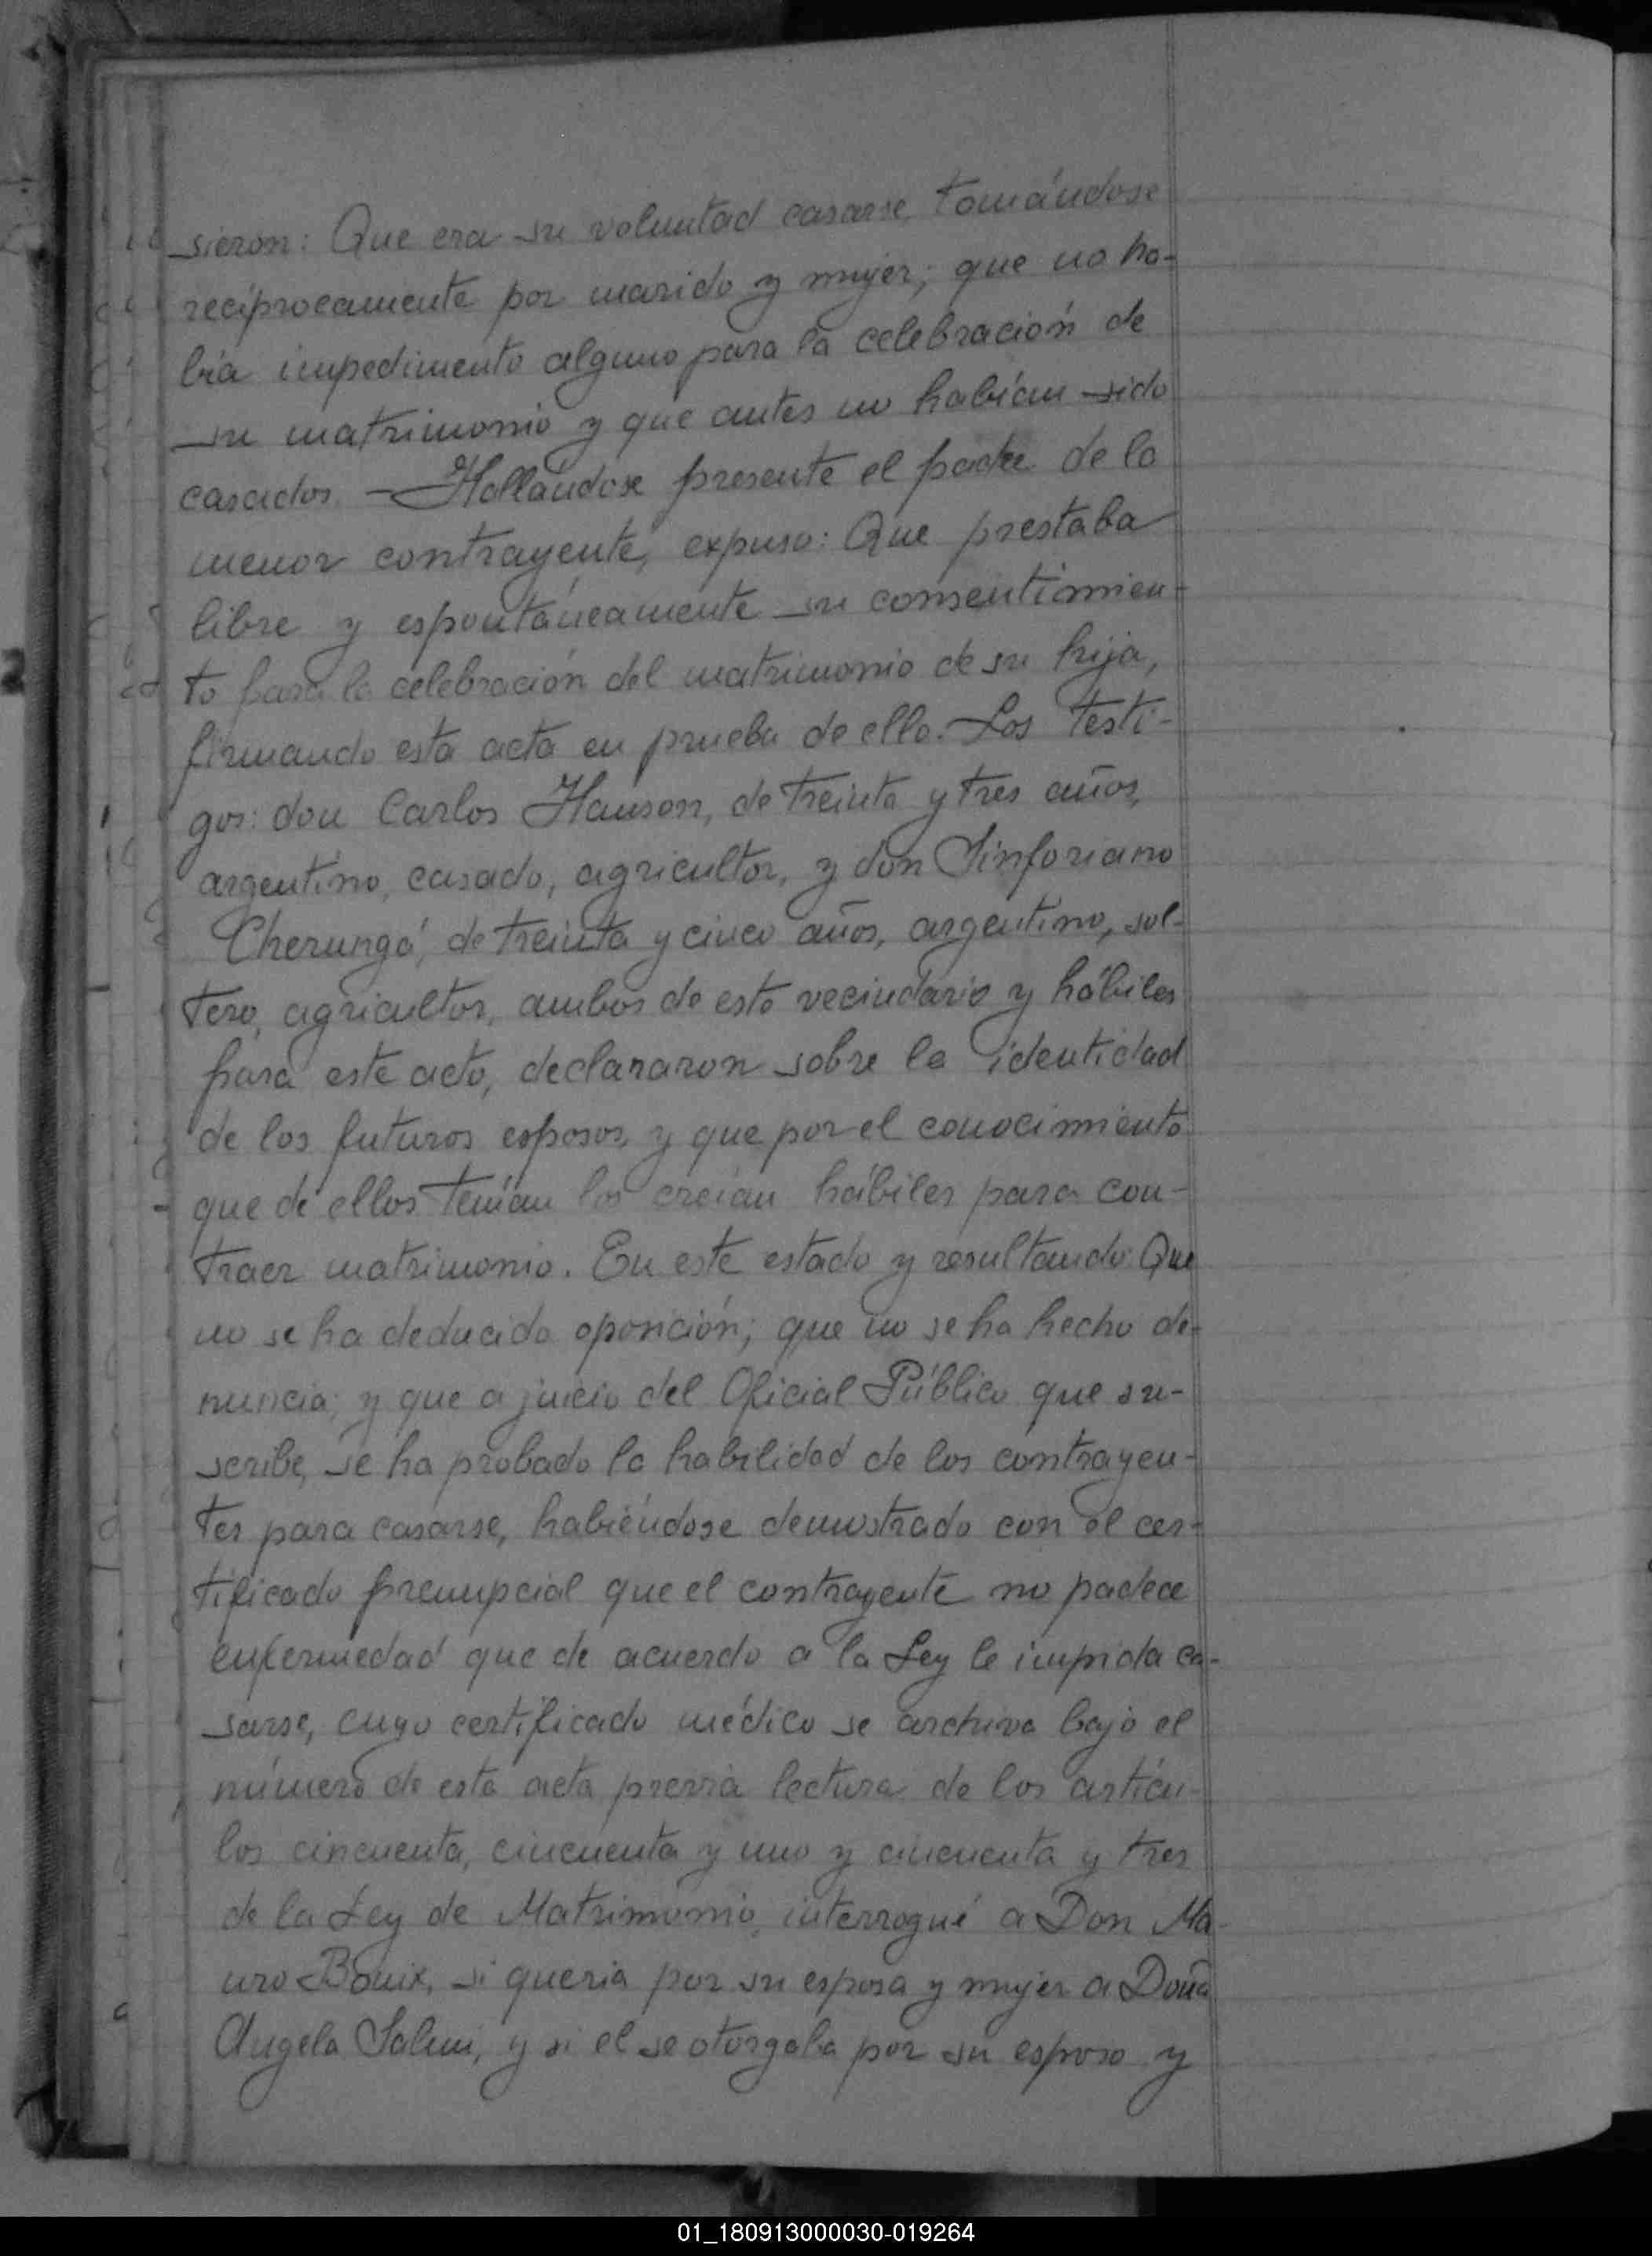 sieron: Que era su voluntad casarse, tomándose
recíprocamente por marido y mujer; que no ha-
bía impedimento alguno para la celebración de
su matrimonio y que antes no habían sido
casados. - Hallándose presente el padre de la
menor contrayente, expuso: Que prestaba
libre y espontáneamente su consentimien-
to para la celebración del matrimonio de su hija,
firmando esta acta en prueba de ello. - Los testi-
gos: don Carlos Hansen, de treinta y tres años,
argentino, casado, agricultor, y don Sinforiano
Cherungó, de treinta y cinco años, argentino, sol-
tero, agricultor, ambos de este vecindario y hábiles
para este acto, declararon sobre la identidad
de los futuros esposos, y que por el conocimiento
que de ellos tenían los creían hábiles para con-
traer matrimonio. En este estado y resultando: Que
no se ha deducido oposición; que no se ha hecho de-
nuncia; y que a juicio del Oficial Público que su-
scribe, se ha probado la habilidad de los contrayen-
tes para casarse, habiéndose demostrado con el cer-
tificado prenupcial que el contrayente no padece
enfermedad que de acuerdo a la Ley le impida ca-
sarse, cuyo certificado médico se archiva bajo el
número de esta acta previa lectura de los artícu-
los cincuenta, cincuenta y uno y cincuenta y tres
de la Ley de Matrimonio, interrogué a Don Ma-
uro Bouix, si quería por su esposa y mujer a Doña
Angela Salmi, y si el se otorgaba por su esposo y
01_180913000030-019264